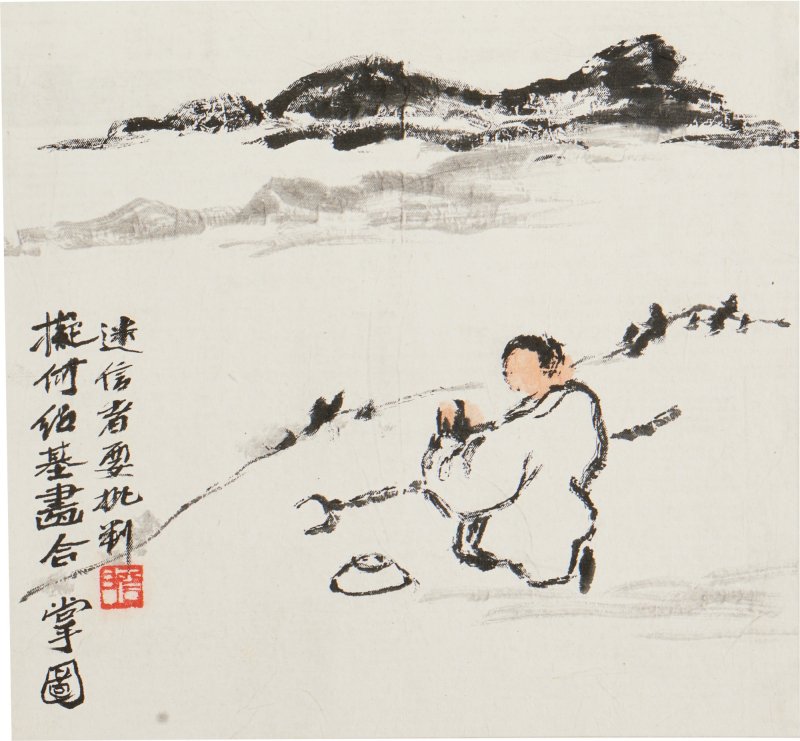 迷信者要批判
擬何紹基畫合掌圖